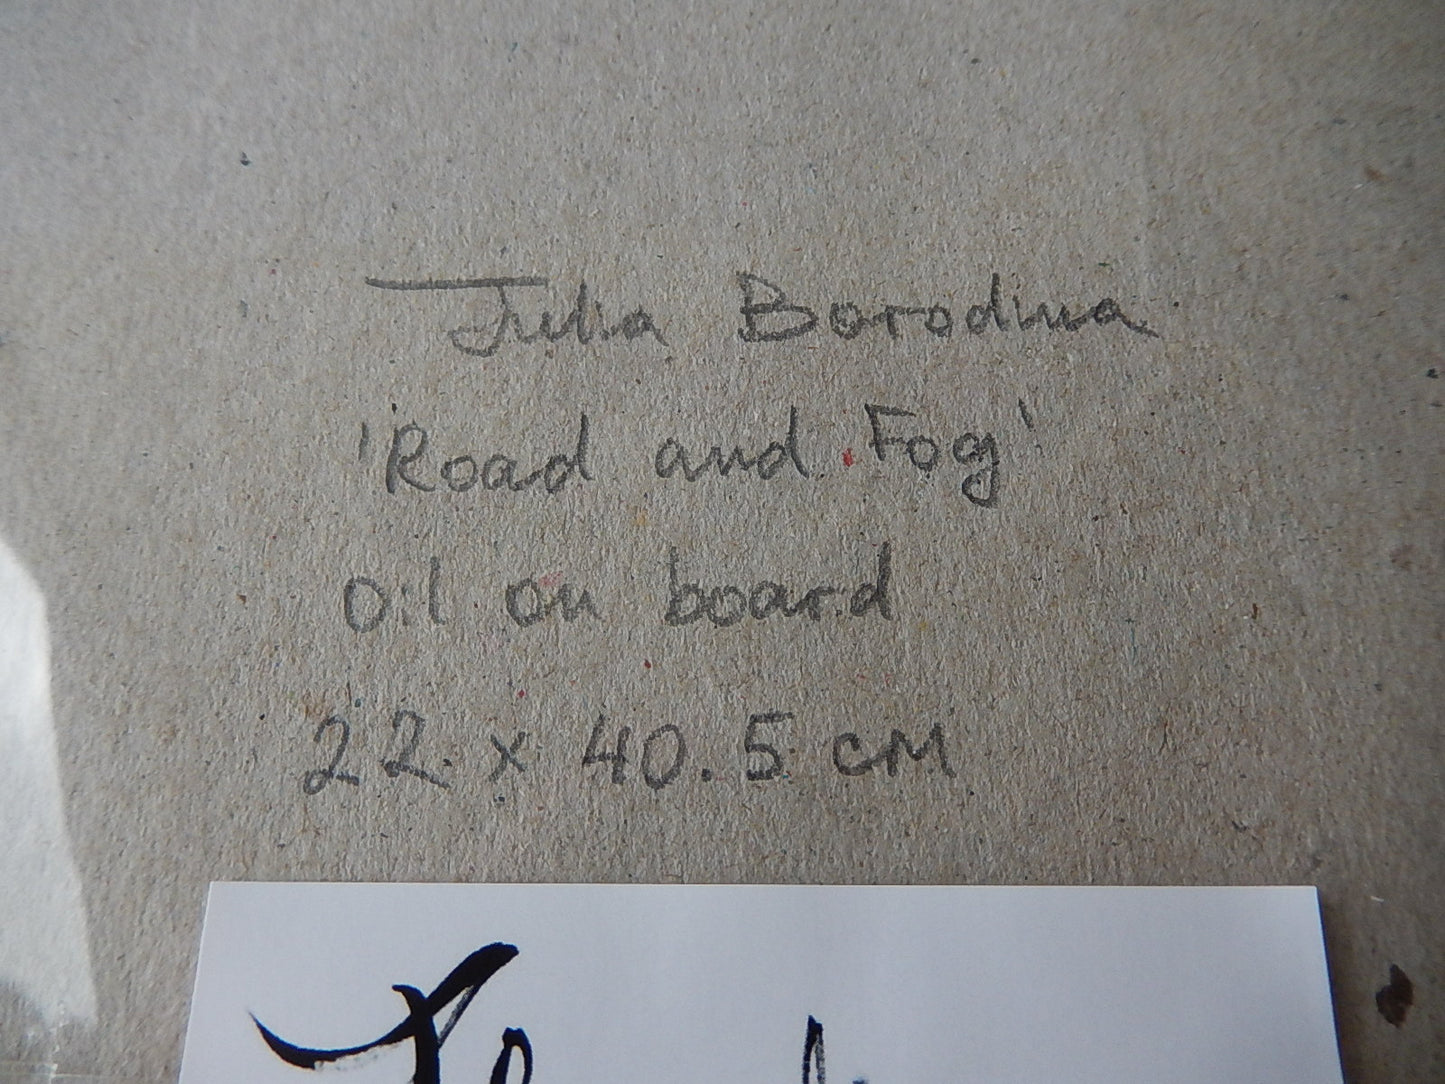 Julia Borodina
'Road and Fog'
Oil on board
22 x 40.5 cm